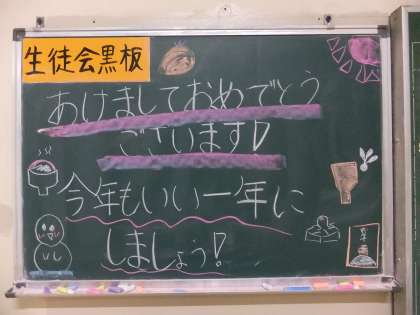 生徒会黒板
あけましておめでとう
ございます♪
今年もいい一年に
しましょう!